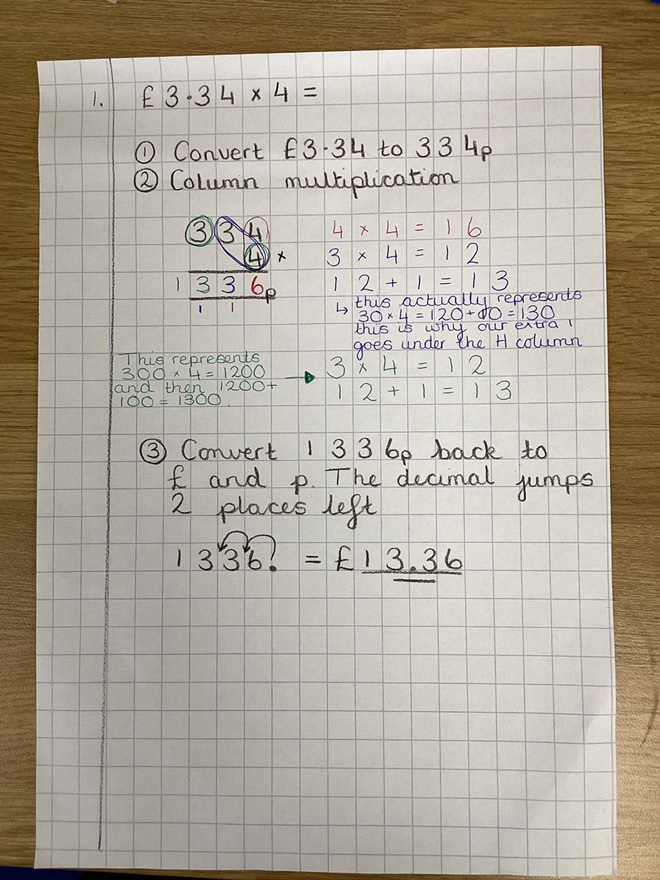 1. £3.34 × 4 =
① Convert £3.34 to 334p
② Column multiplication
334
4 ×
1336p
1 1
4 × 4 = 16
3 × 4 = 12
12 + 1 = 13
↳ this actually represents
30 × 4 = 120 + 10 = 130
this is why our extra 1
goes under the H column
This represents
300 × 4 = 1200
and then 1200+
100 = 1300.
3 × 4 = 12
12 + 1 = 13
③ Convert 1336p back to
£ and p. The decimal jumps
2 places left
1336. = £13.36